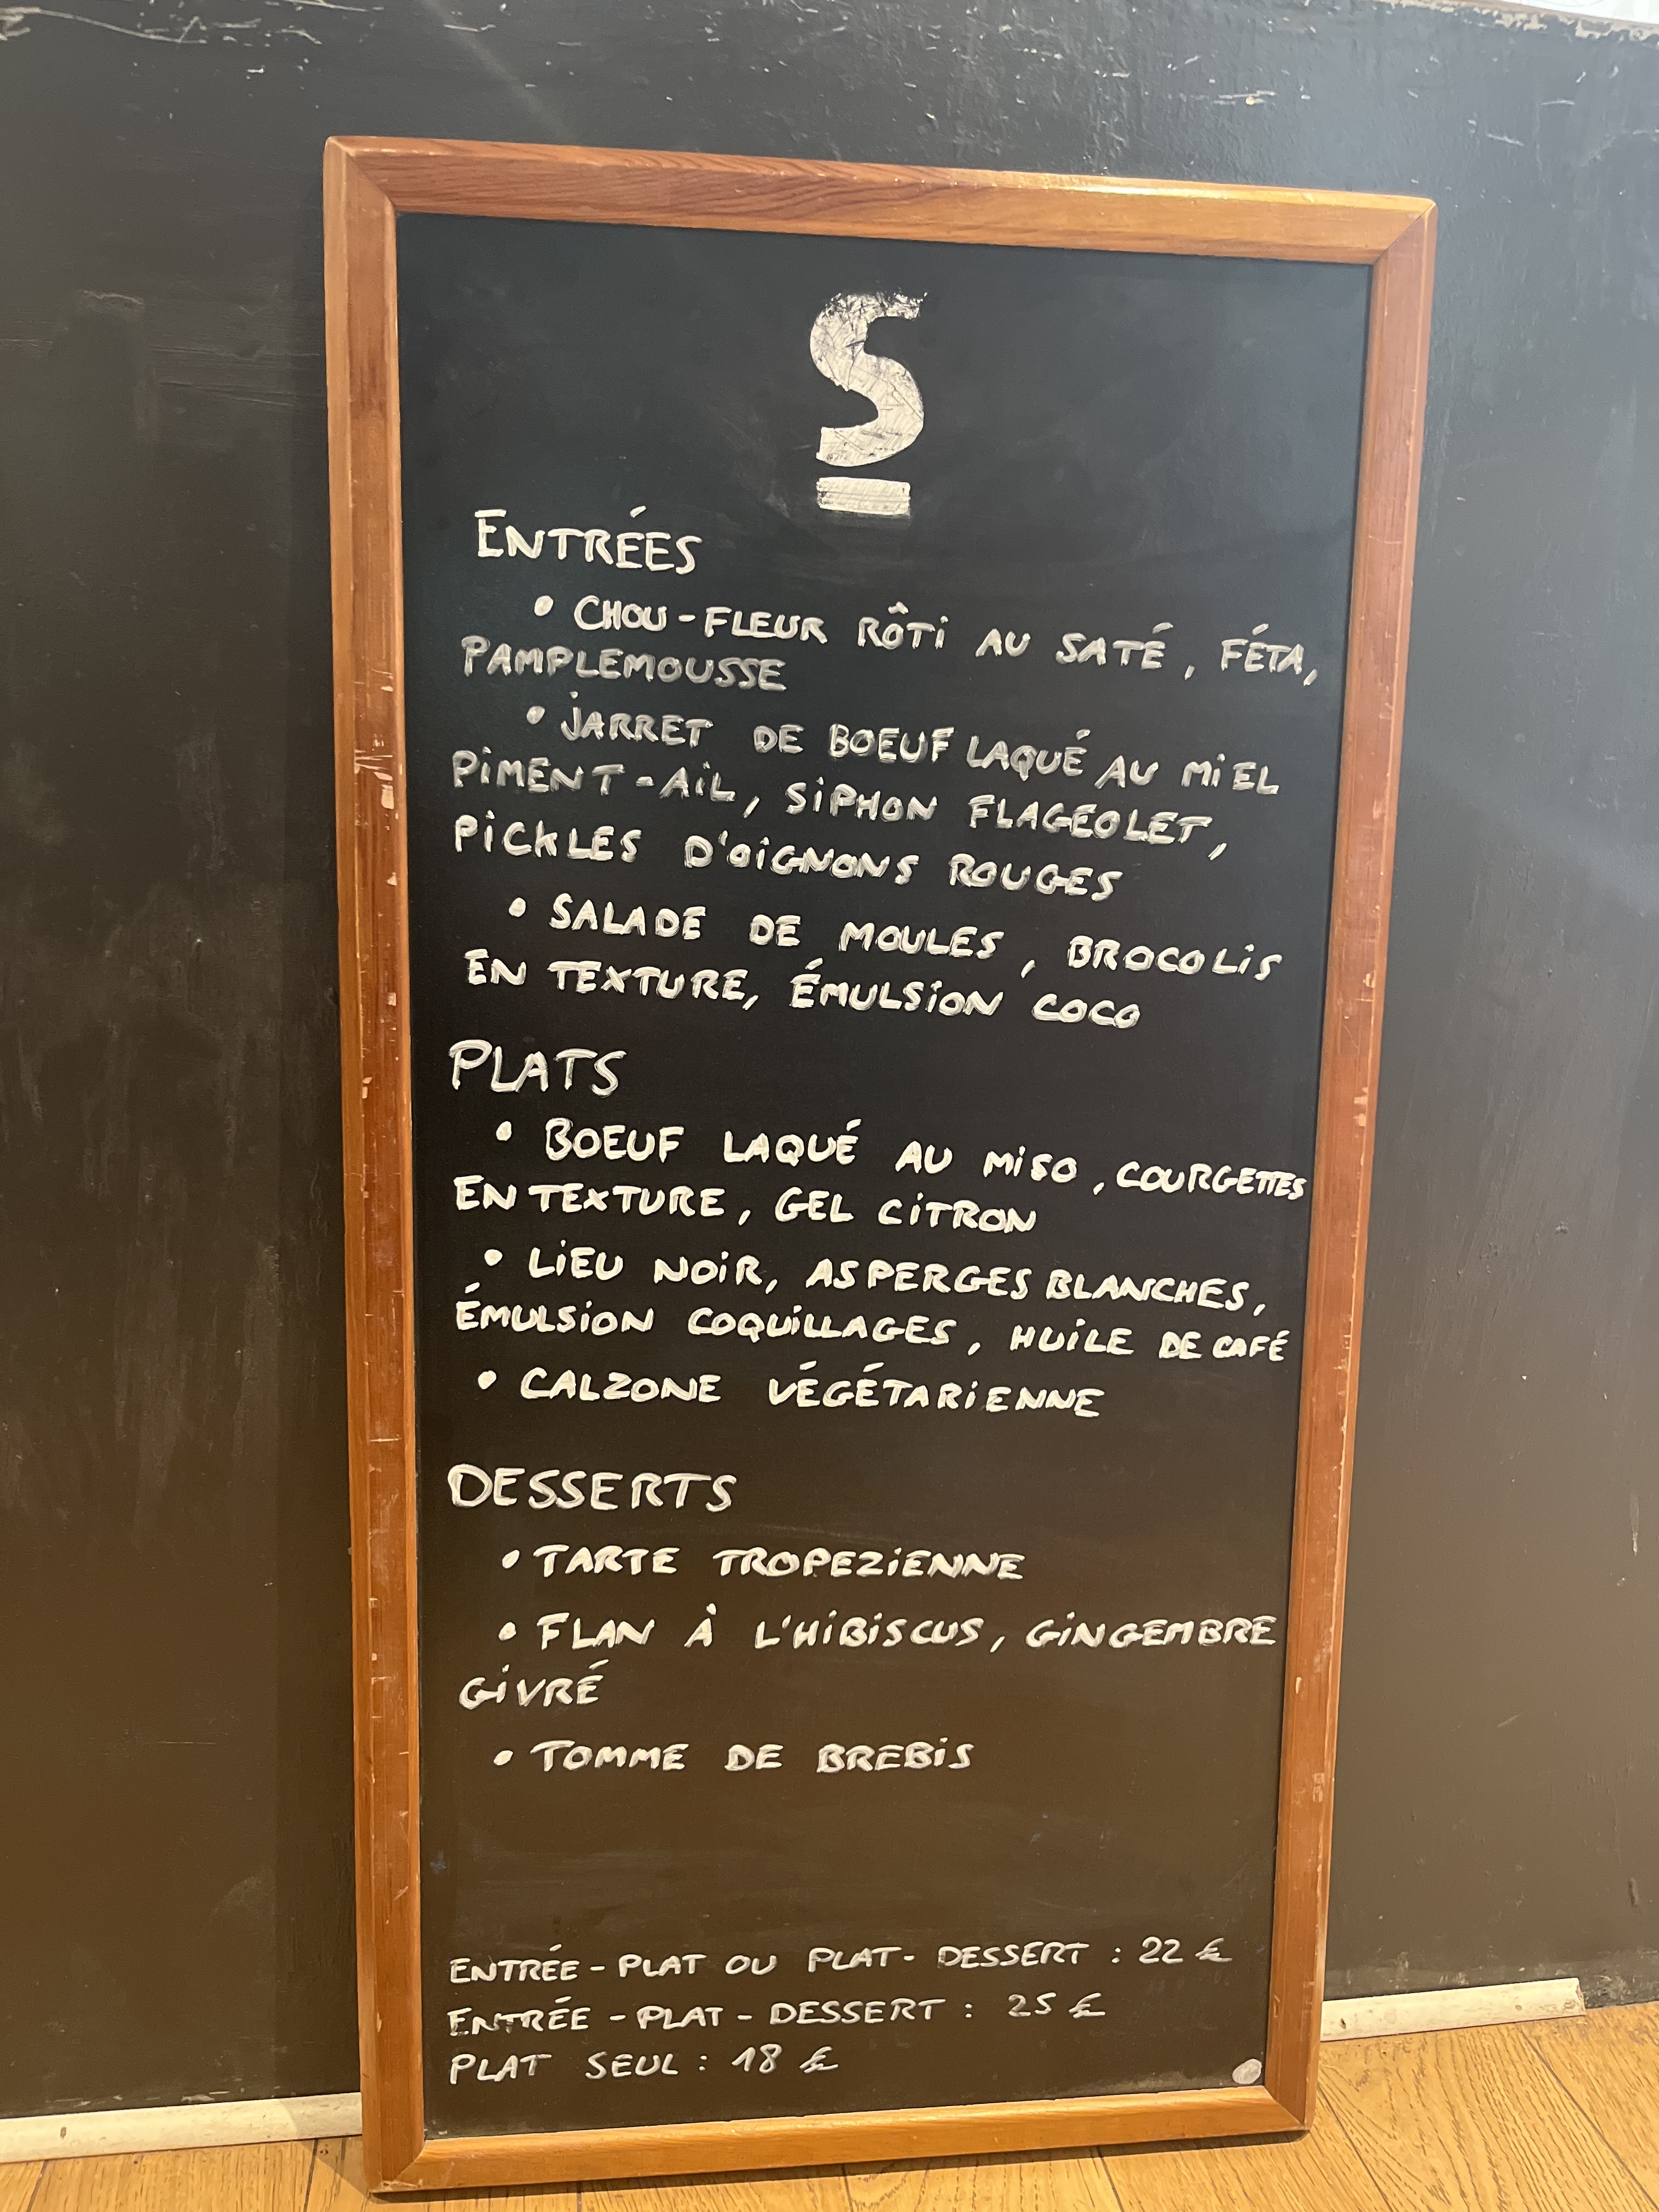 S
ENTRÉES
• CHOU-FLEUR RÔTI AU SATÉ, FÉTA,
PAMPLEMOUSSE
• JARRET DE BOEUF LAQUÉ AU MIEL
PIMENT-AIL, SIPHON FLAGEOLET,
PICKLES D'OIGNONS ROUGES
• SALADE DE MOULES, BROCOLIS
EN TEXTURE, ÉMULSION COCO
PLATS
• BOEUF LAQUÉ AU MISO, COURGETTES
EN TEXTURE, GEL CITRON
• LIEU NOIR, ASPERGES BLANCHES,
ÉMULSION COQUILLAGES, HUILE DE CAFÉ
• CALZONE VÉGÉTARIENNE
DESSERTS
• TARTE TROPEZIENNE
• FLAN À L'HIBISCUS, GINGEMBRE
GIVRÉ
• TOMME DE BREBIS
ENTRÉE-PLAT OU PLAT-DESSERT : 22 €
ENTRÉE-PLAT-DESSERT : 25 €
PLAT SEUL : 18 €